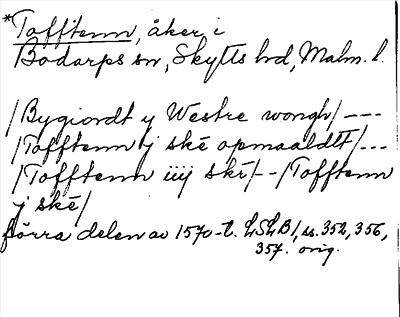 *Tofftenn, åker, i
Bodarps sn, Skytts hrd, Malm. l.
/Bygiordt y Westre wongh/---
/Tofftenn j skē opmaaldt/---
/Tofftenn iiij skē/--/Tofftenn
j skē/
förra delen av 1570-t. LSLB/, ss. 352, 356,
357. orig.